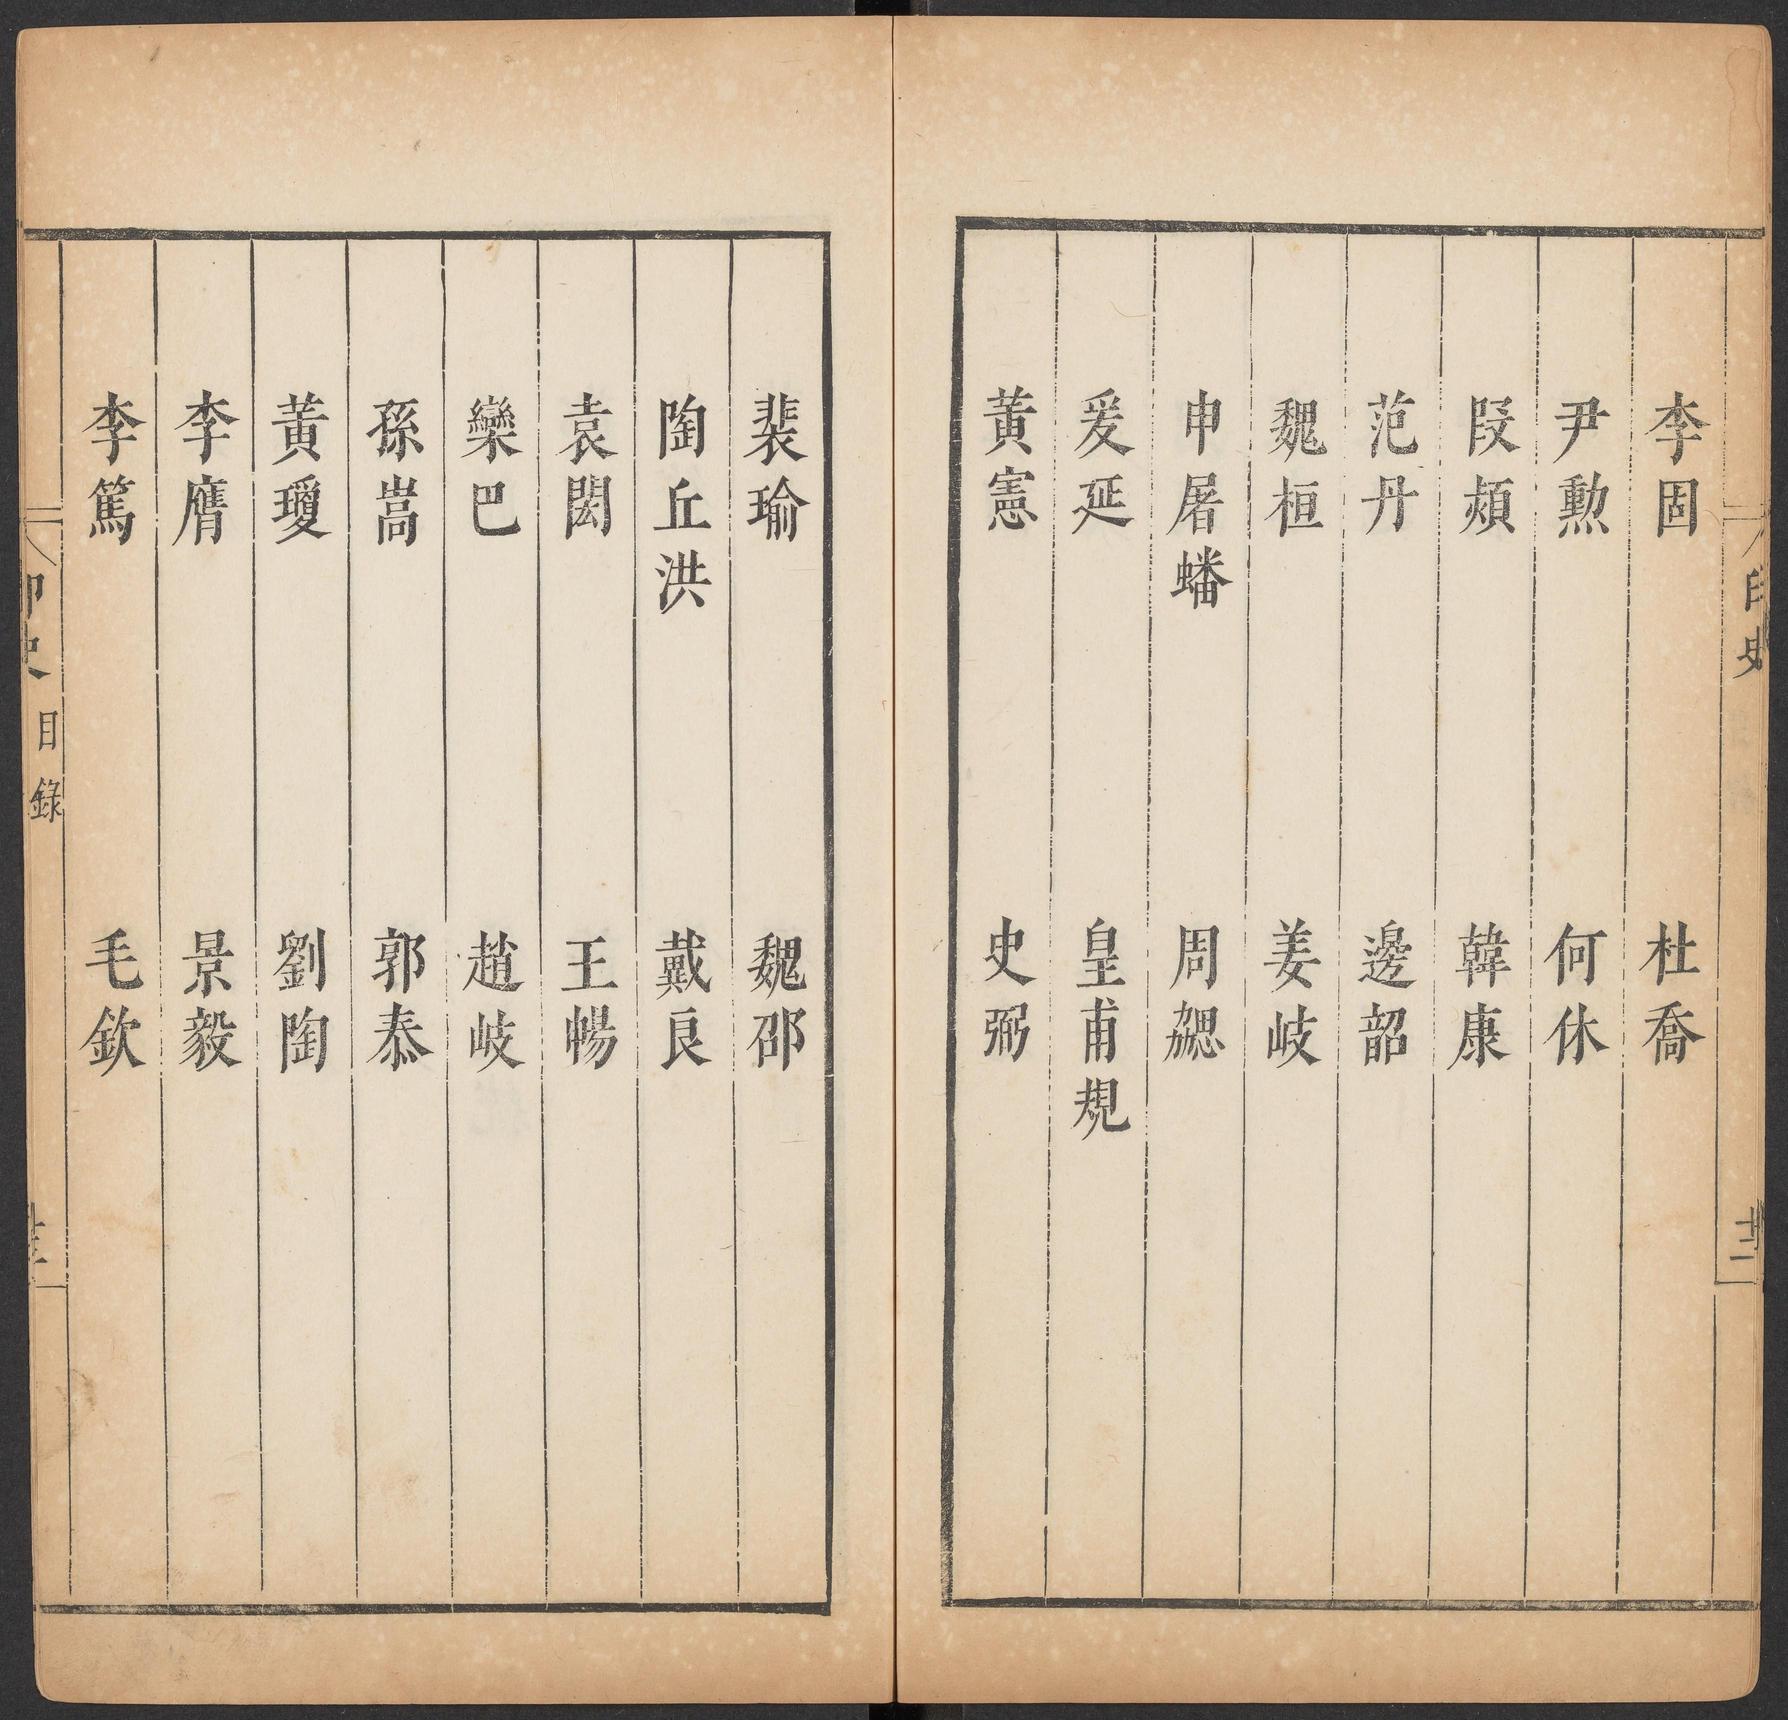 印史
廿二
李固 杜喬
尹勲 何休
段熲 韓康
范丹 邊韶
魏桓 姜岐
申屠蟠 周勰
爰延 皇甫規
黃憲 史弼
裴瑜 魏邵
陶丘洪 戴良
袁閎 王暢
欒巴 趙岐
孫嵩 郭泰
黃瓊 劉陶
李膺 景毅
李篤 毛欽
印史 目錄